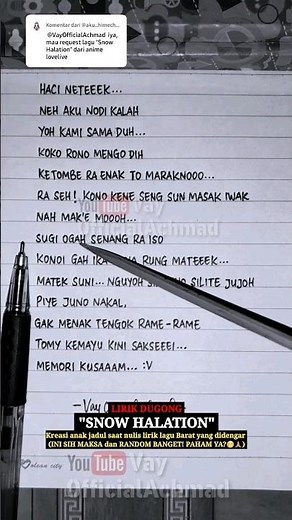 Komentar dari lilaku_himech...
@VayOfficialAchmad iya,
mau request lagu "Snow
Halation" dari anime
lovelive
HACI NETEEEK...
NEH AKU NODI KALAH
YOH KAMI SAMA DUH...
KOKO RONO MENGO DIH
KETOMBE RA ENAK TO MARAKNOOO...
RA SEH! KONO KENE SENG SUN MASAK IWAK
NAH MAK'E MOOOH...
SUGI OGAH SENANG RA ISO
KONOI GAH IKA RUNG MATEEEK...
MATEK SUNI... NGUYOH SILITE JUJOH
PIYE JUNO NAKAL,
GAK MENAK TENGOK RAME-RAME
TOMY KEMAYU KINI SAKSEEEI...
MEMORI KUSAAAM... :V
-Vay
YouTube Vay
OfficialAchmad
LIRIK DUGONG
"SNOW HALATION"
Kreasi anak jadul saat nulis lirik lagu Barat yang didengar
(INI SIH MAKSA dan RANDOM BANGET! PAHAM YA?😁🙏)
ocean city
YouTube Vay
OfficialAchmad